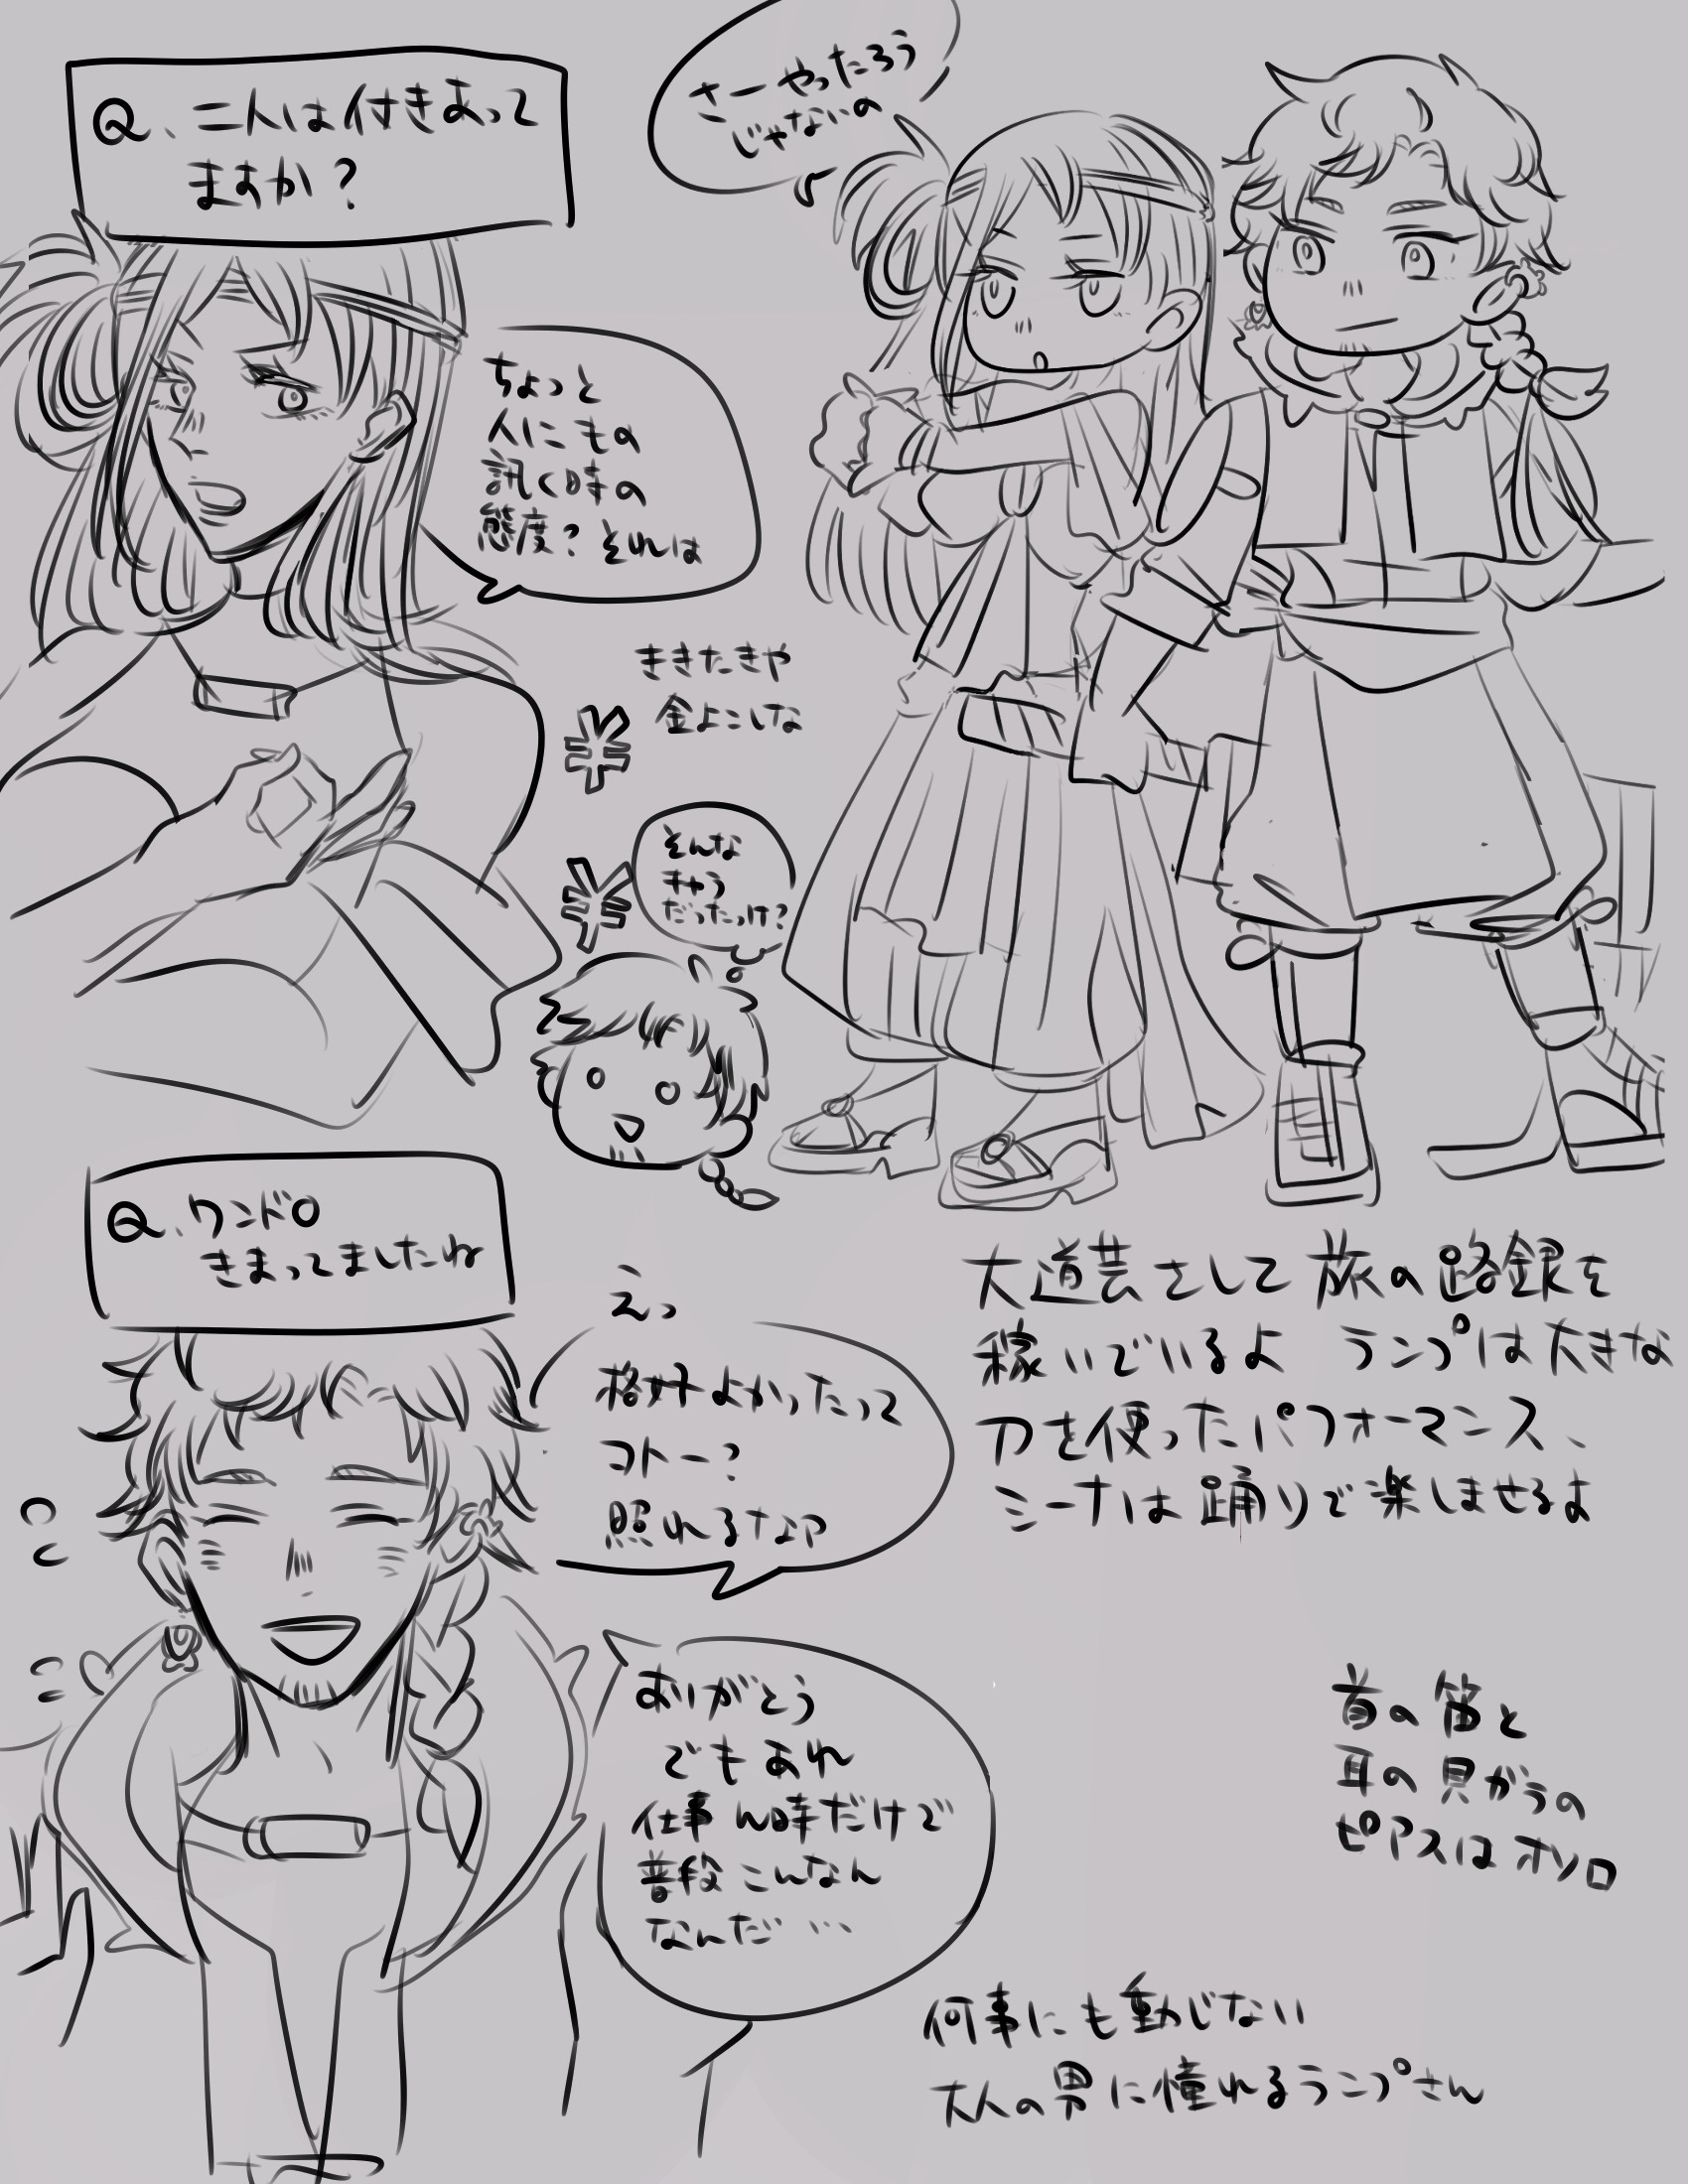 Q、二人は付きあって
ますか?
さーやったろう
じゃないの
ちょっと
人にもの
訊く時の
態度?それは
ききたきゃ
金よこしな
そんな
キャラ
だったっけ?
Q、ワンドロ
きまってましたね
えっ
格好よかったって
コトー?
照れるなァ
ありがとう
でもあれ
仕事ん時だけで
普段こんなん
なんだ…
大道芸をして旅の路銀を
稼いでいるよ ランプは大きな
刀を使ったパフォーマンス、
シーナは踊りで楽しませるよ
首の笛と
耳の貝がらの
ピアスはオソロ
何事にも動じない
大人の男に憧れるランプさん